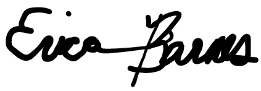 Erica Barnes